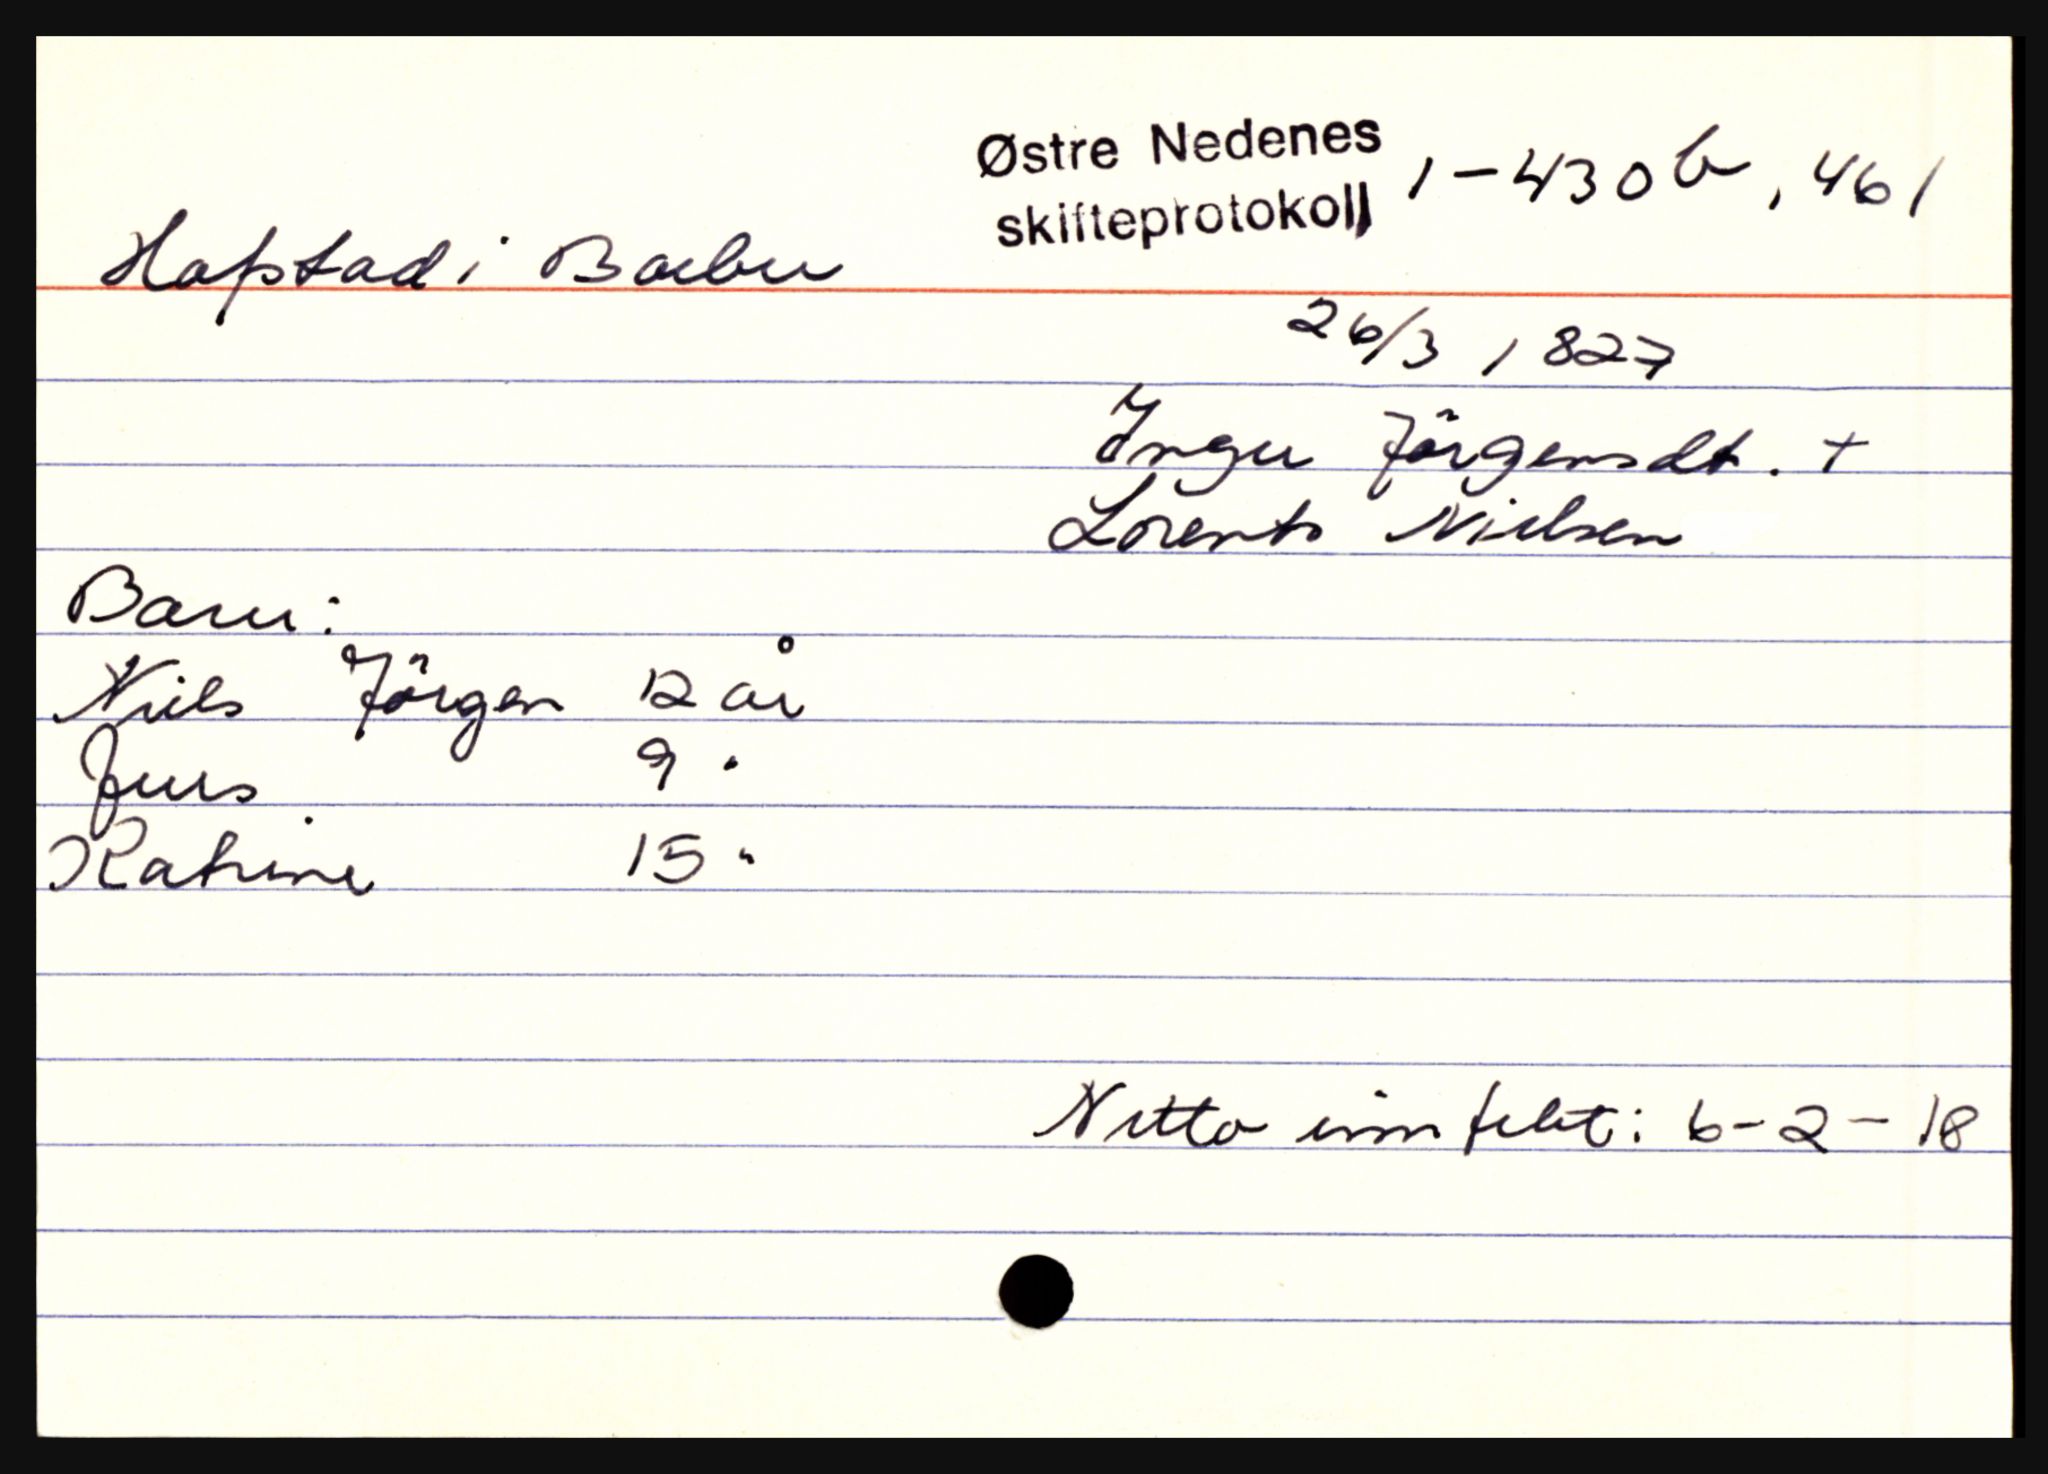 Østre Nedenes
skifteprotokoll 1-430b, 461
Hafstad i Barbu
26/3 1827
Inger Jörgensdt. +
Lorents Nielsen
Barn:
Niels Jörgen 12 år
Jens 9 "
Katrine 15 "
Netto inntekt: 6-2-18